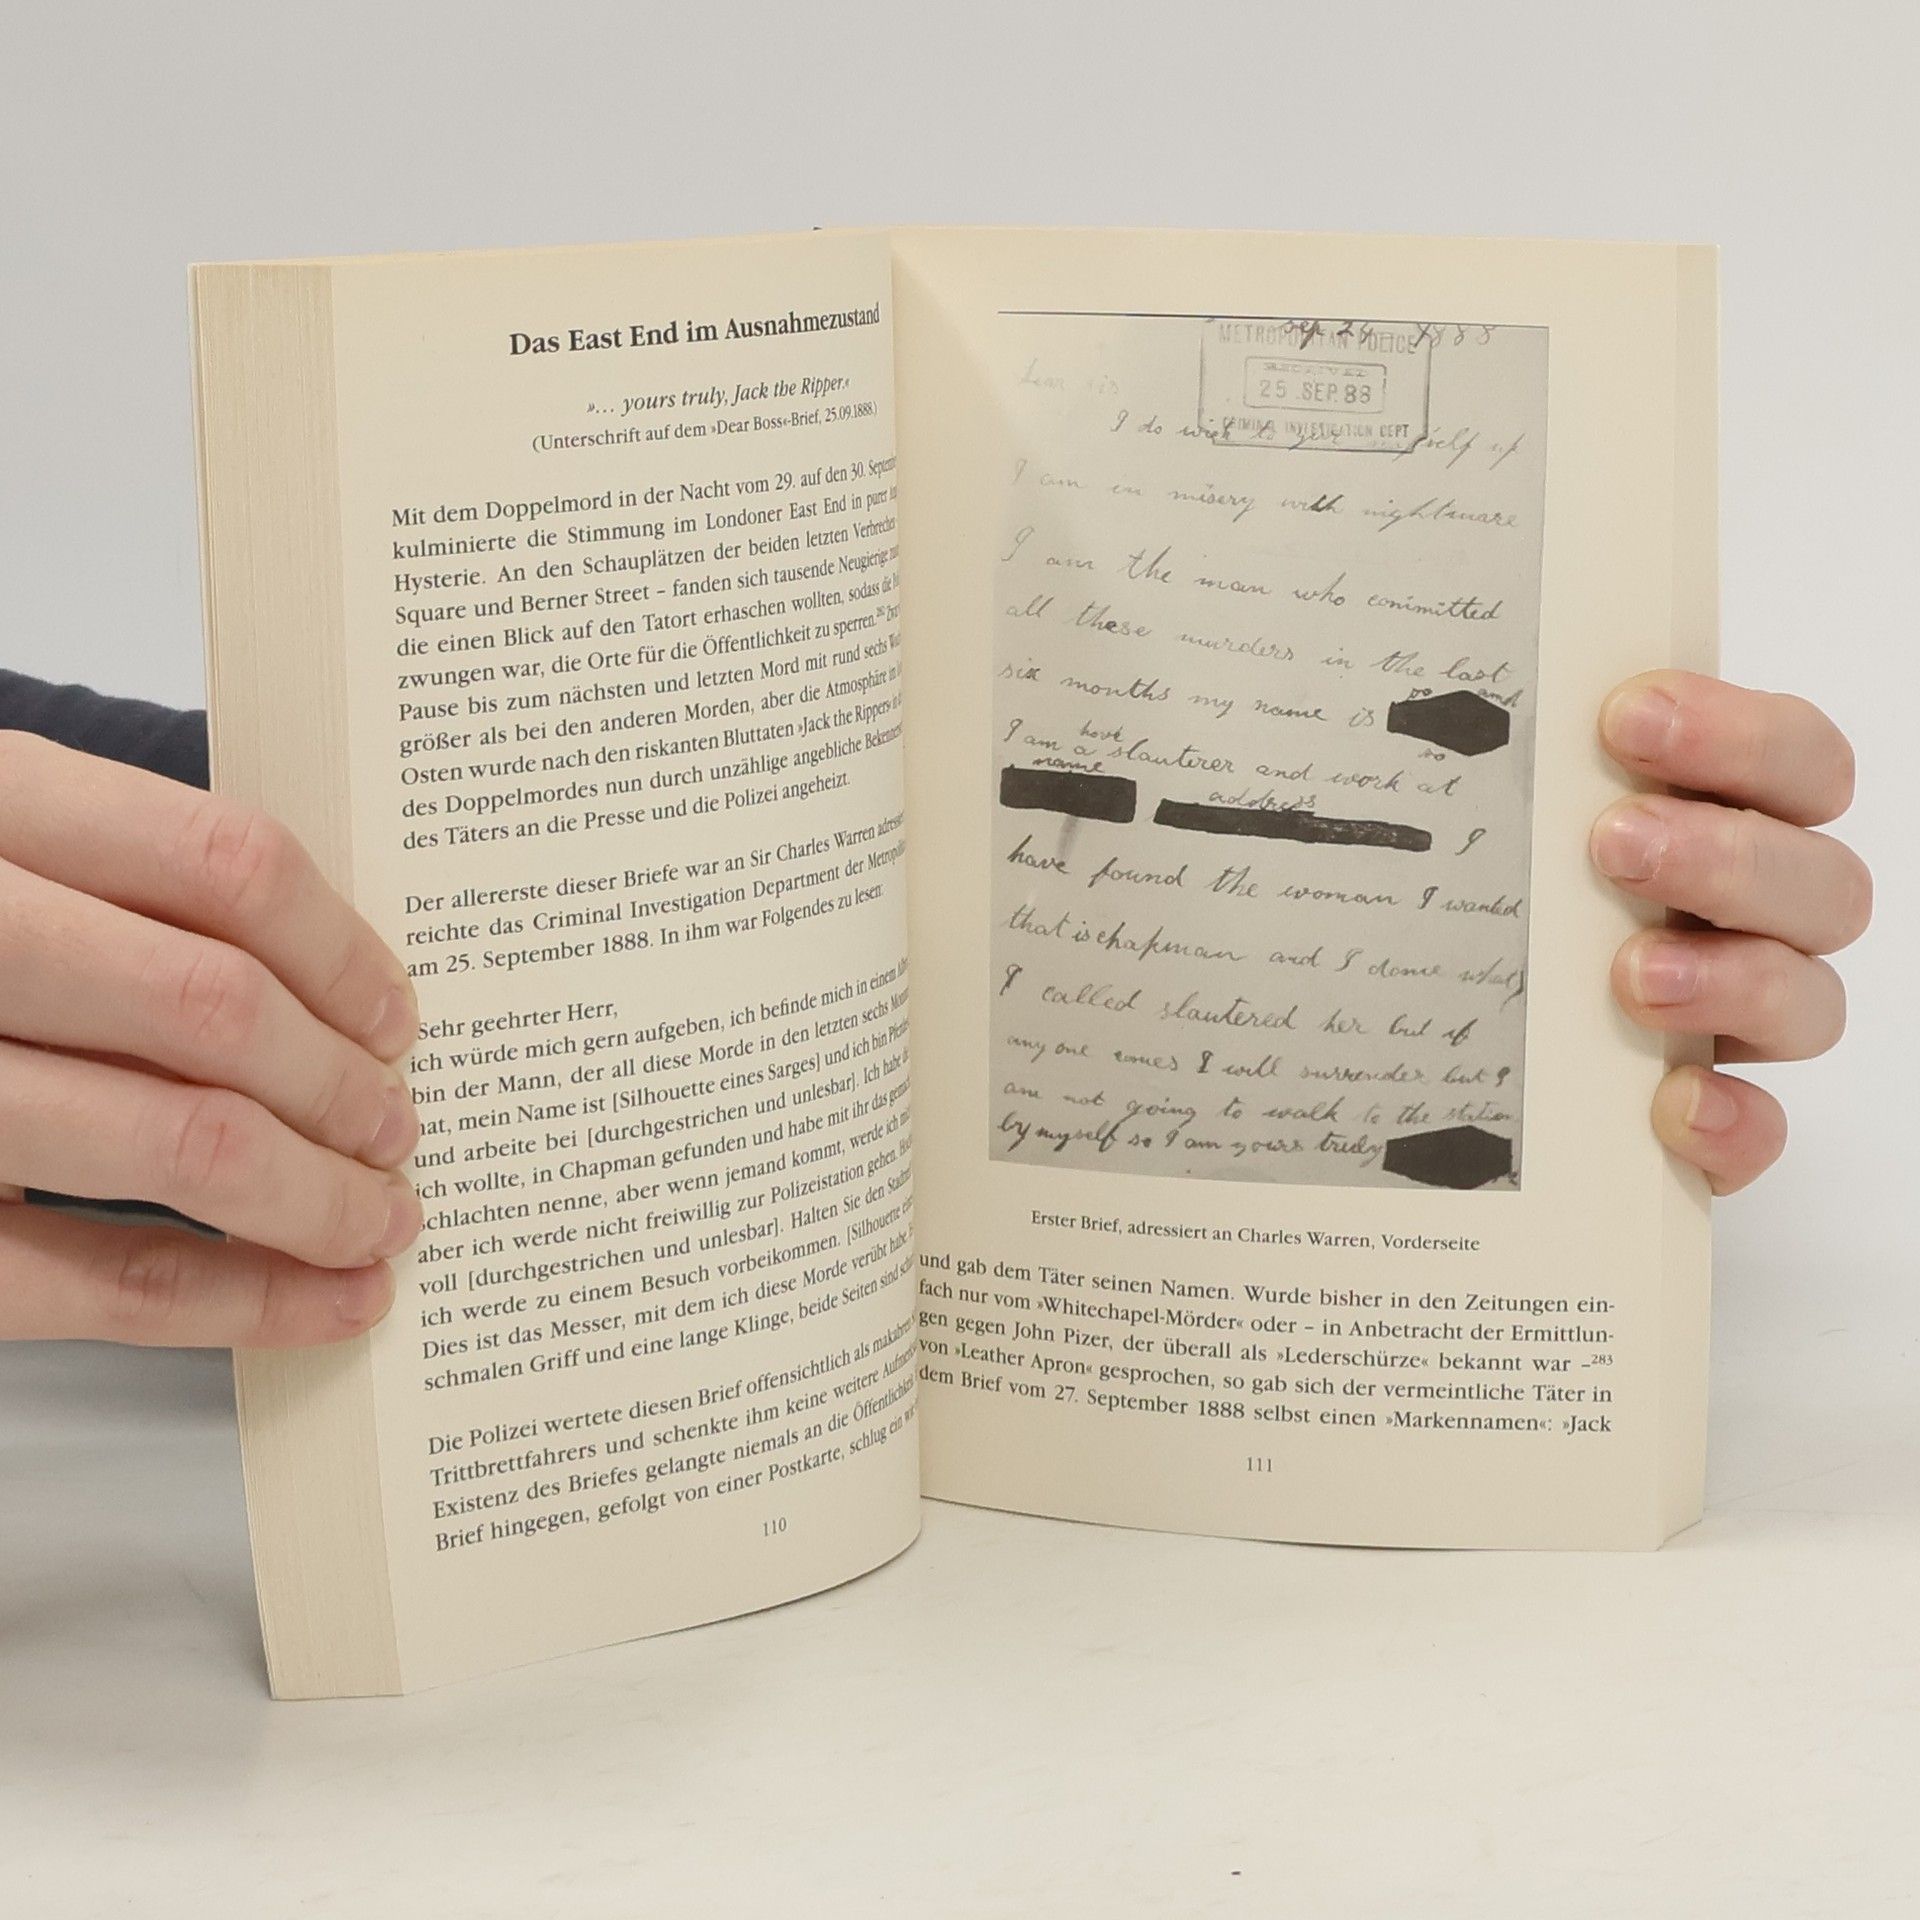 Das East End im Ausnahmezustand
»… yours truly, Jack the Ripper.«
(Unterschrift auf dem »Dear Boss«-Brief, 25.09.1888.)
Mit dem Doppelmord in der Nacht vom 29. auf den 30.
kulminierte die Stimmung im Londoner East End in purer
Hysterie. An den Schauplätzen der beiden letzten
Square und Berner Street – fanden sich tausende Neugierige
die einen Blick auf den Tatort erhaschen wollten, sodass die
zwungen war, die Orte für die Öffentlichkeit zu sperren.
Pause bis zum nächsten und letzten Mord mit rund sechs
größer als bei den anderen Morden, aber die Atmosphäre in
Osten wurde nach den riskanten Bluttaten »Jack the Rippers«
des Doppelmordes nun durch unzählige angebliche
des Täters an die Presse und die Polizei angeheizt.
Der allererste dieser Briefe war an Sir Charles Warren
reichte das Criminal Investigation Department der
am 25. September 1888. In ihm war Folgendes zu lesen:
Sehr geehrter Herr,
ich würde mich gern aufgeben, ich befinde mich in einem
bin der Mann, der all diese Morde in den letzten sechs
hat, mein Name ist [Silhouette eines Sarges] und ich bin
und arbeite bei [durchgestrichen und unlesbar]. Ich habe
ich wollte, in Chapman gefunden und habe mit ihr das
schlachten nenne, aber wenn jemand kommt, werde ich
aber ich werde nicht freiwillig zur Polizeistation gehen.
voll [durchgestrichen und unlesbar]. Halten Sie den
ich werde zu einem Besuch vorbeikommen. [Silhouette
Dies ist das Messer, mit dem ich diese Morde verübt habe.
schmalen Griff und eine lange Klinge, beide Seiten sind
Die Polizei wertete diesen Brief offensichtlich als makabren
Trittbrettfahrers und schenkte ihm keine weitere
Existenz des Briefes gelangte niemals an die Öffentlichkeit.
Brief hingegen, gefolgt von einer Postkarte, schlug ein wie
110
sep 24 1888
METROPOLITAN POLICE
RECEIVED
25 .SEP. 88
CRIMINAL INVESTIGATION DEPT
Dear sir
I do wish to give myself up
I am in misery with nightmare
I am the man who committed
all these murders in the last
six months my name is so and
so
I am a horse slauterer and work at
name address
I
have found the woman I wanted
that is chapman and I done what
I called slautered her but if
any one comes I will surrender but I
am not going to walk to the station
by myself so I am yours truly
Erster Brief, adressiert an Charles Warren, Vorderseite
und gab dem Täter seinen Namen. Wurde bisher in den Zeitungen ein-
fach nur vom »Whitechapel-Mörder« oder – in Anbetracht der Ermittlun-
gen gegen John Pizer, der überall als »Lederschürze« bekannt war –283
von »Leather Apron« gesprochen, so gab sich der vermeintliche Täter in
dem Brief vom 27. September 1888 selbst einen »Markennamen«: »Jack
111